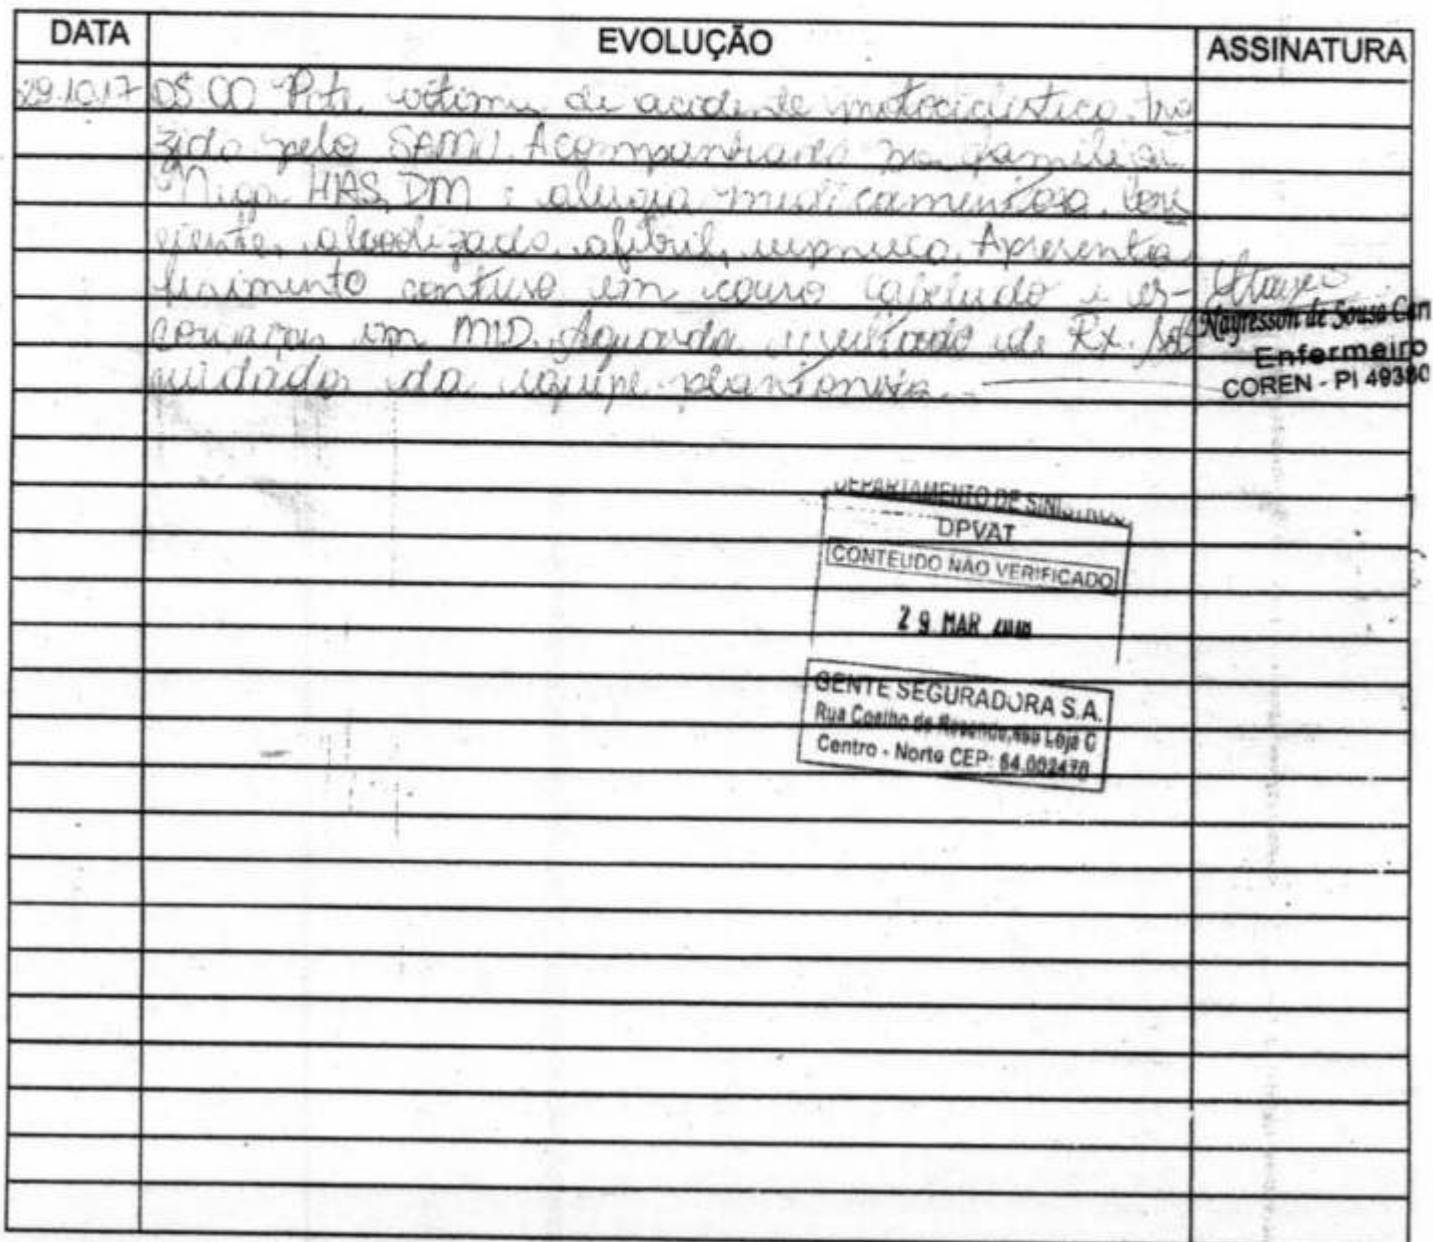 DATA EVOLUÇÃO ASSINATURA
29.10.17 05:00 Pcte vítima de acidente motociclístico, tra
zido pelo SAMU. Acompanhado por familiar.
Nega HAS, DM e alergia medicamentosa. Cons
ciente, alcoolizado, afebril, eupneico. Apresenta
ferimento contuso em couro cabeludo e es-
coriaçoes em MID. Aguarda resultado de Rx. Sob
cuidados da equipe plantonista.
Nayresson de Sousa Carv
Enfermeiro
COREN - PI 49380
DEPARTAMENTO DE SINISTROS
DPVAT
CONTEUDO NÃO VERIFICADO
29 MAR
GENTE SEGURADORA S.A.
Rua Coelho de Resende, Loja C
Centro - Norte CEP: 64.002470